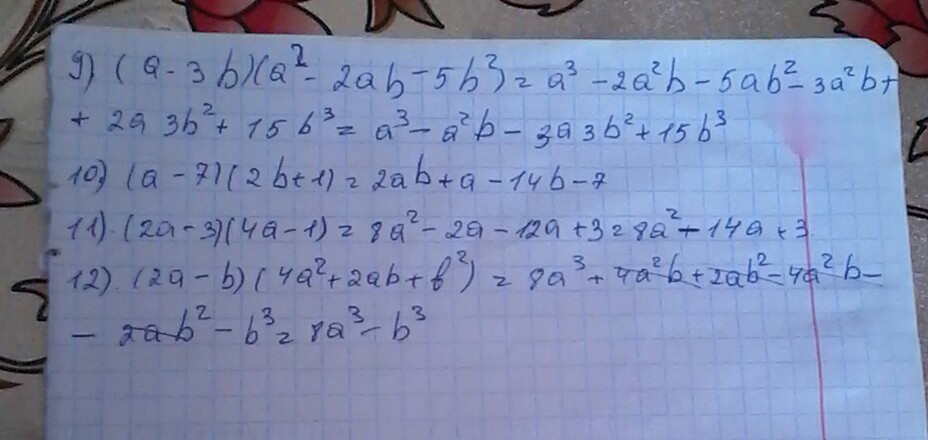 9) (a - 3b)(a² - 2ab - 5b²) = a³ - 2a²b - 5ab² - 3a²b +
+ 2a 3b² + 15b³ = a³ - a²b - 3a 3b² + 15b³
10) (a - 7)(2b + 1) = 2ab + a - 14b - 7
11). (2a - 3)(4a - 1) = 8a² - 2a - 12a + 3 = 8a² - 14a + 3
12). (2a - b)(4a² + 2ab + b²) = 8a³ + 4a²b + 2ab² - 4a²b -
- 2ab² - b³ = 8a³ - b³